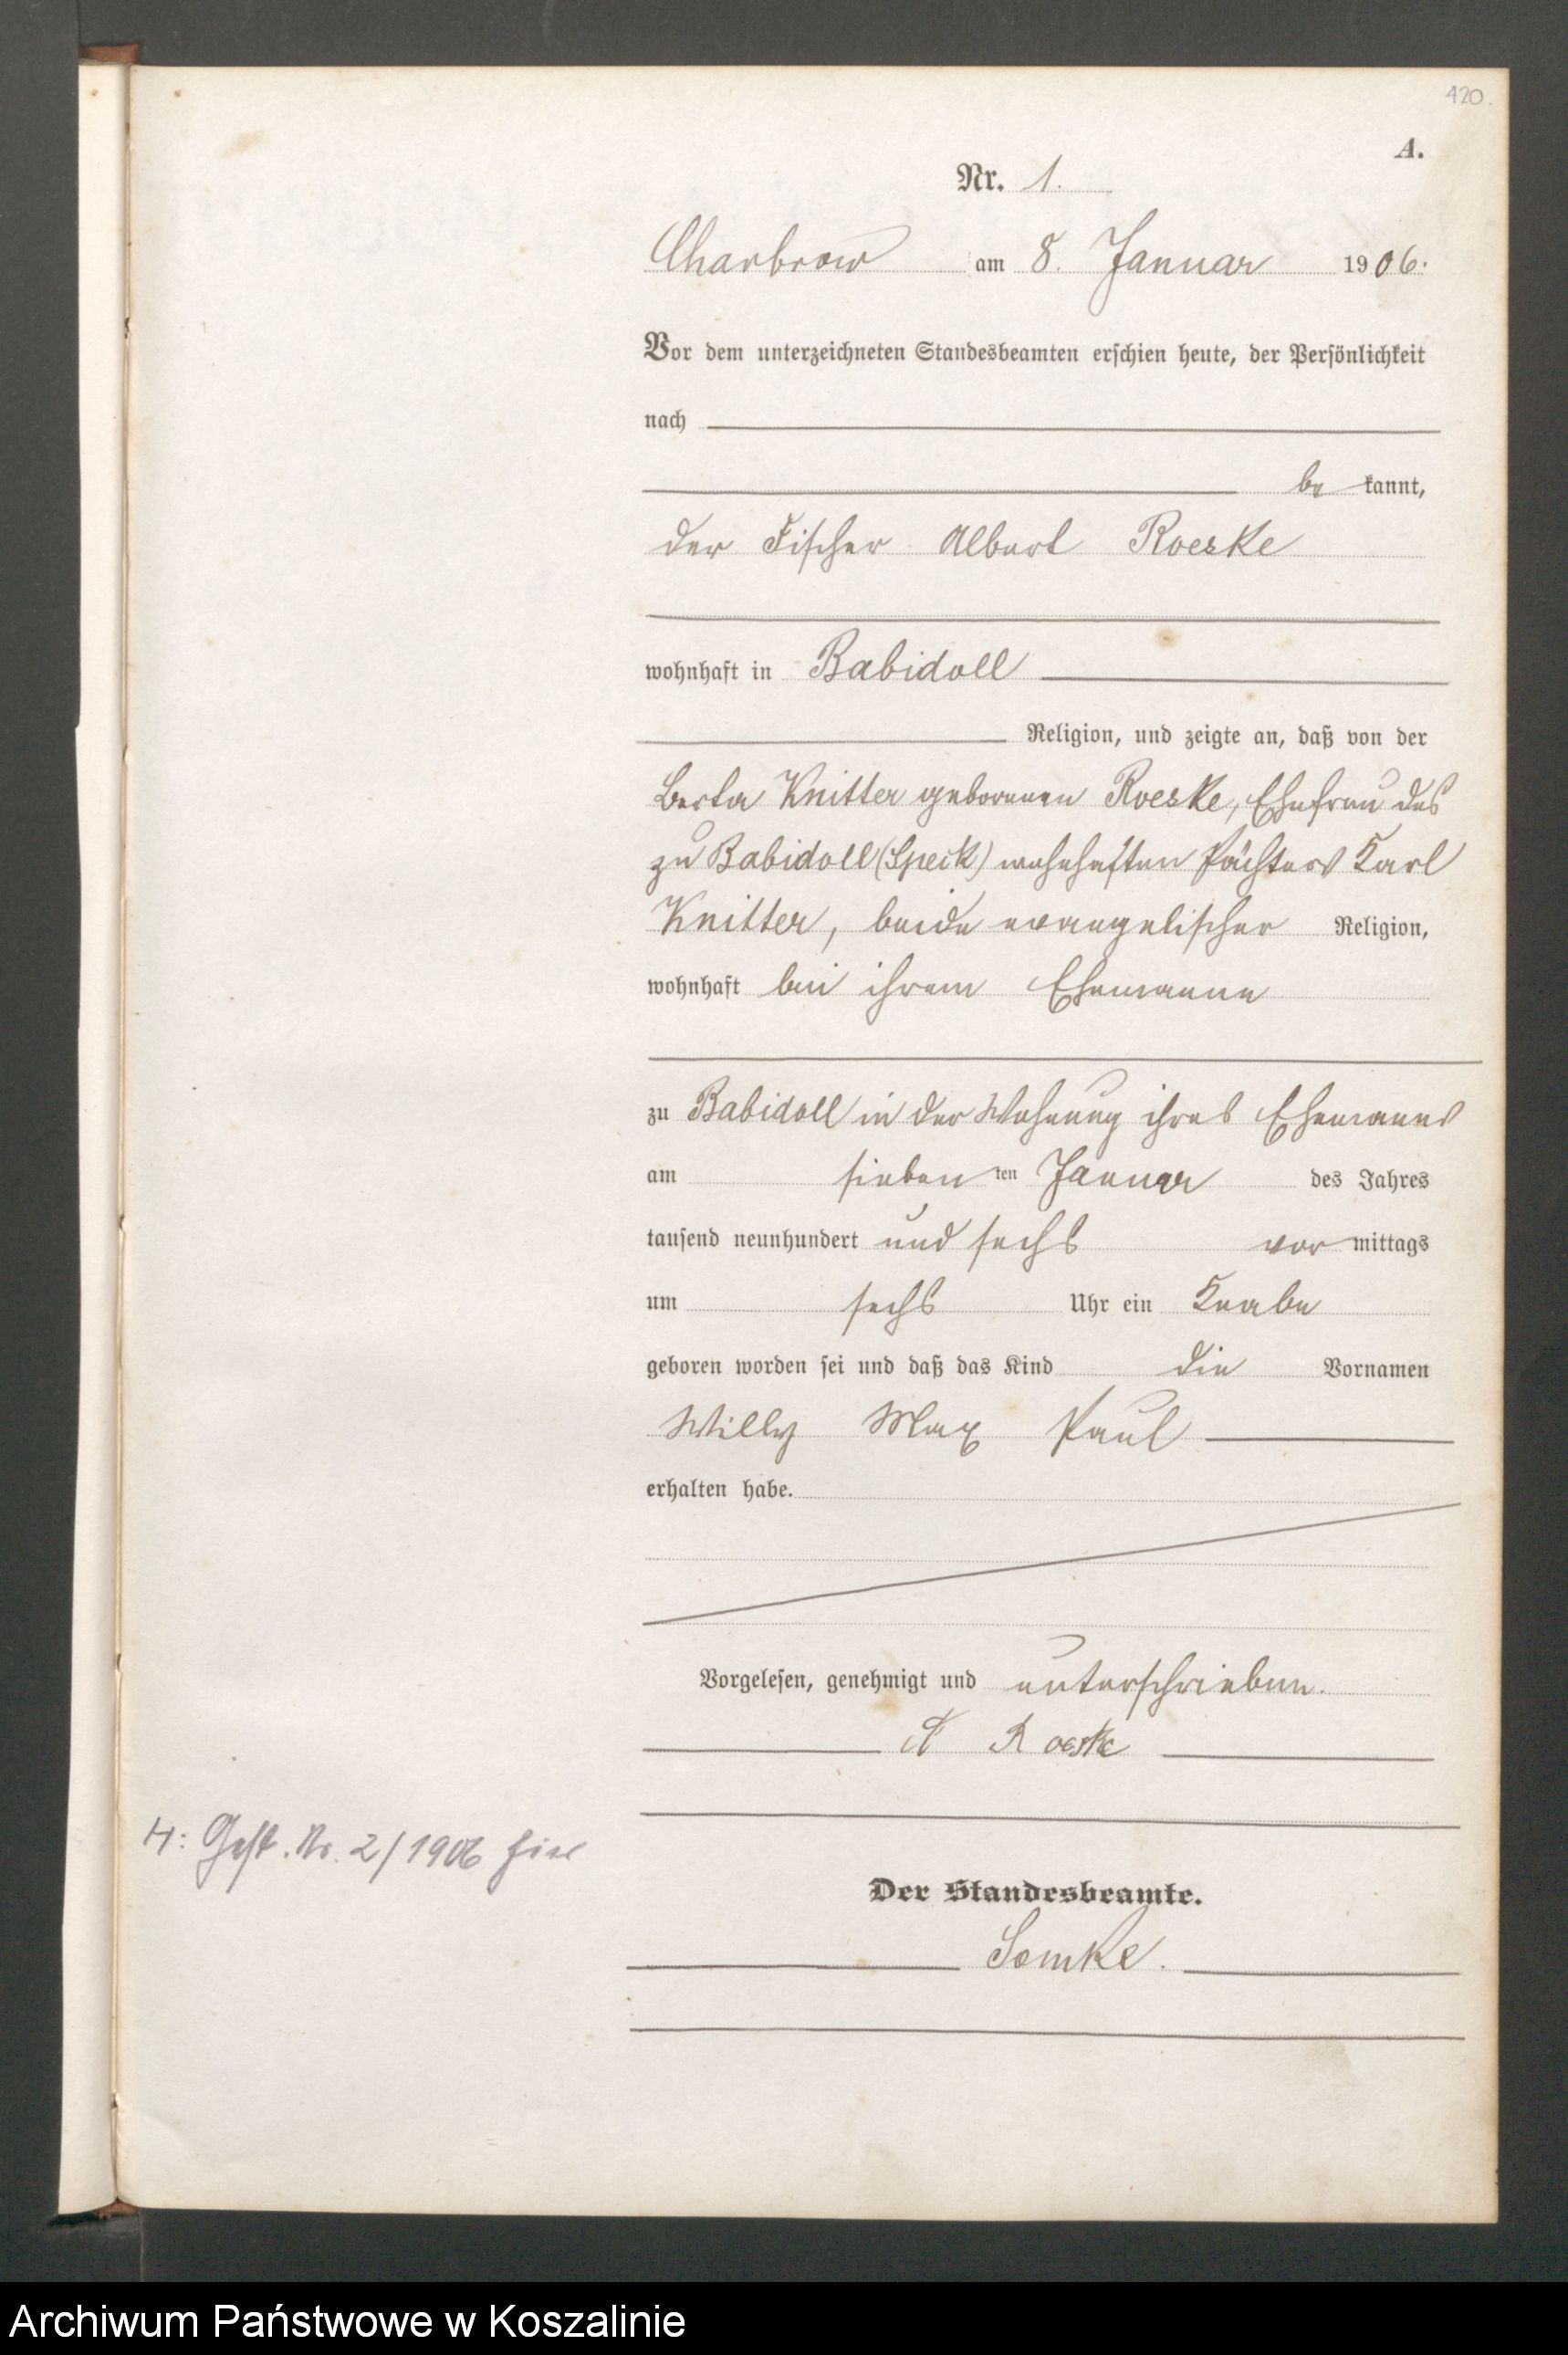 420.
A.
Nr. 1.
Charbrow am 8. Januar 1906.
Vor dem unterzeichneten Standesbeamten erschien heute, der Persönlichkeit
nach
be kannt,
der Fischer Albert Roeske
wohnhaft in Babidoll
Religion, und zeigte an, daß von der
Berta Knitter geborenen Roeske, Ehefrau des
zu Babidoll (Speck) wohnhaften Pächters Karl
Knitter, beide evangelischer Religion,
wohnhaft bei ihrem Ehemanne
zu Babidoll in der Wohnung ihres Ehemannes
am sieben ten Januar des Jahres
tausend neunhundert und sechs vor mittags
um sechs Uhr ein Knabe
geboren worden sei und daß das Kind die Vornamen
Willy Max Paul
erhalten habe.
Vorgelesen, genehmigt und unterschrieben.
A Roeske
H: Gest. Nr. 2/1906 hier
Der Standesbeamte.
Somke.
Archiwum Państwowe w Koszalinie